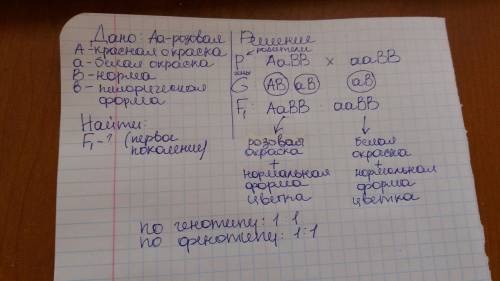 Дано: Aa-розовая
A-красная окраска
a-белая окраска
B-норма
b-пилорическая
форма
Найти:
F₁-? (первое
поколение)
Решение
родители
P AaBB × aaBB
гаметы
G AB aB aB
F₁ AaBB : aaBB
розовая
окраска
+
нормальная
форма
цветка
белая
окраска
+
нормальная
форма
цветка
по генотипу: 1:1
по фенотипу: 1:1